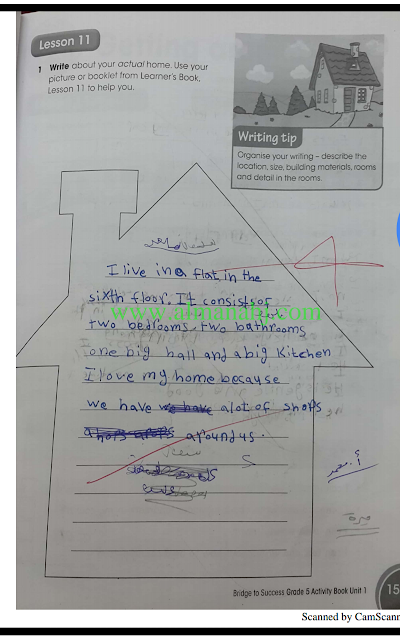 Lesson 11
1 Write about your actual home. Use your
picture or booklet from Learner's Book,
Lesson 11 to help you.
Writing tip
Organise your writing – describe the
location, size, building materials, rooms
and detail in the rooms.
I live in a flat in the
sixth floor. It consists of
www.almanahj.com
two bedrooms, two bathrooms
one big hall and a big Kitchen
I love my home because
we have we have alot of shops
around us.
Bridge to Success Grade 5 Activity Book Unit 1
15
Scanned by CamScann